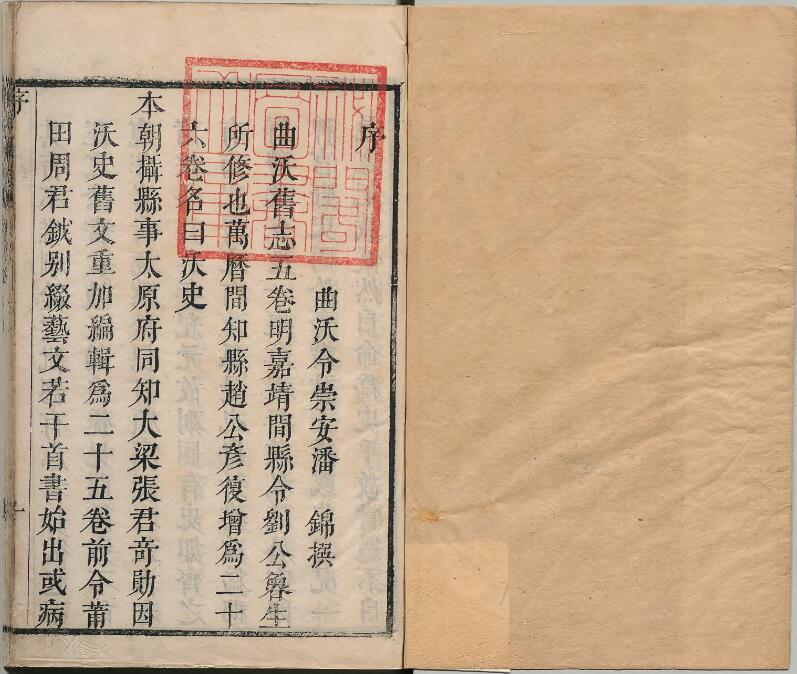 序
曲沃令崇安潘　錦撰
曲沃舊志五卷明嘉靖間縣令劉公魯生
所修也萬曆間知縣趙公彥復增爲二十
六卷名曰沃史
本朝攝縣事太原府同知大梁張君奇勛因
沃史舊文重加編輯爲二十五卷前令莆
田周君鉞别綴藝文若干首書始出或病
序
一